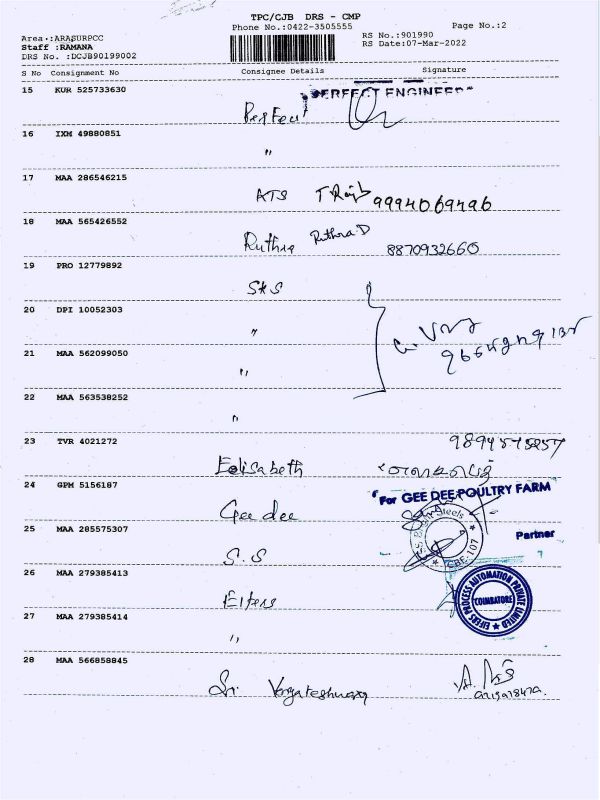 TPC/CJB DRS - CMP
Phone No.:0422-3505555
Page No.:2
Area.:ARASURPCC
RS No.:901990
Staff :RAMANA
RS Date:07-Mar-2022
DRS No. :DCJB90199002
S No Consignment No Consignee Details Signature
15 KUR 525733630 Perfect PERFECT ENGINEER
16 IXM 49880851 "
17 MAA 286546215 ATS 9994069496
18 MAA 565426552 Ruthra Ruthra D 8870932660
19 PRO 12779892 SKS
20 DPI 10052303 "
21 MAA 562099050 "
22 MAA 563538252 "
23 TVR 4021272 Eolisabeth
24 GPM 5156187 Gee dee For GEE DEE POULTRY FARM
Partner
25 MAA 285575307 S.S Steels CBE-107
26 MAA 279385413 Eifers EIFERS PROCESS AUTOMATION PRIVATE LIMITED COIMBATORE
27 MAA 279385414 "
28 MAA 566858845 Sri